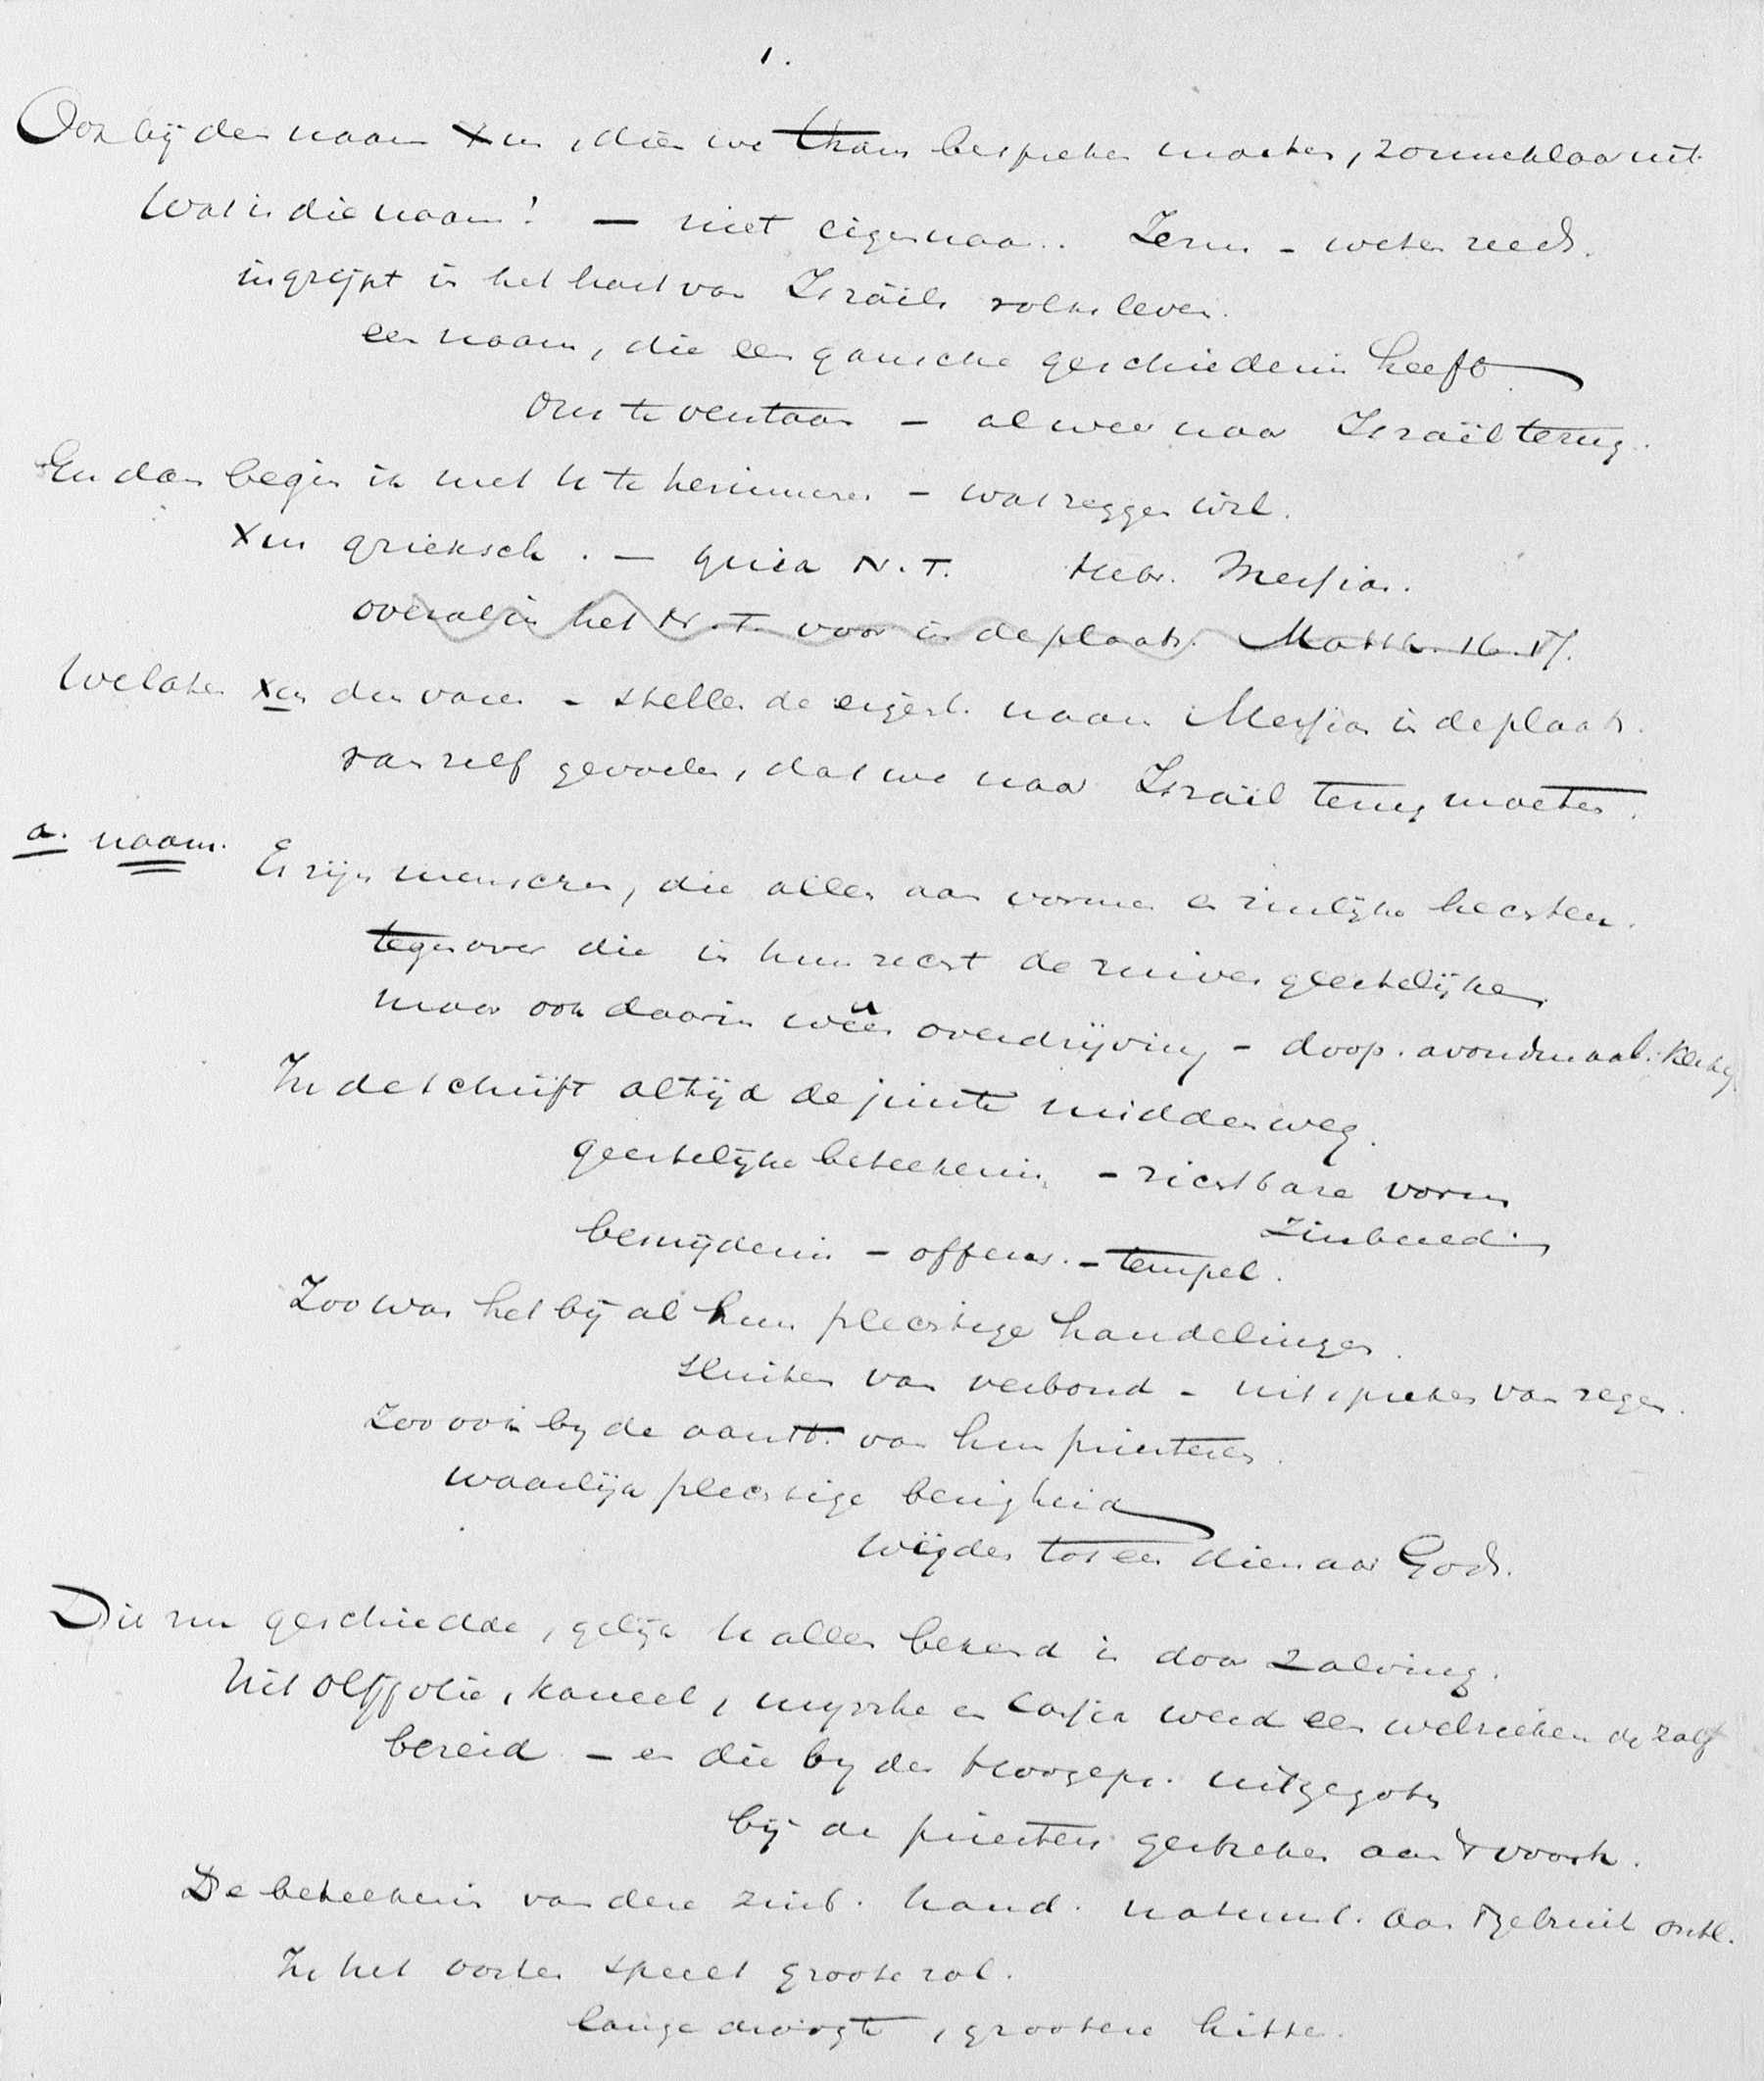 1.
Ook bij den naam Xus, dien we thans bespreken moeten, zonneklaar uit.
Wat is die naam? — niet eigennaam. Jezus – weten reeds.
ingrijpt in het hart van Israëls volksleven.
een naam, die een gansche geschiedenis heeft
Om te verstaan – alweer naar Israël terug.
En dan begin ik met U te herinneren – wat zeggen wil.
Xus grieksch. — quia N.T. Hebr. Messias.
overal in het N.T. voor in de plaats. Matth. 16.17.
Welaken Xus den varen – stellen de eigenl. naam Messias in de plaats.
van zelf gevoelen, dat we naar Israël terug moeten.
a. naam. Er zijn menschen, die alles aan vormen en zinlijke hechten.
tegenover die in hun recht de zuiver geestelijken
maar ook daarin wéér overdrijving – doop. avondmaal.
In de schrift altijd de juiste middenweg.
geestelijke beteekenis – zichtbare vorm
Zinbeeld
besnijdenis – offers. – tempel.
Zoo was het bij al hun plechtige handelingen.
sluiten van verbond – uitspreken van zegen.
Zoo ook by de aanst. van hun priesteren.
waarlijk plechtige bezigheid
wijden tot een dienaar Gods.
Die nu geschiedde, gelijk U allen bekend is door zalving.
Uit olijfolie, kaneel, myrrhe en cassia werd een welriekende zalf
bereid – en die by den Hoogepr. uitgegoten
bij de priesters gestreken aan t voorh.
De beteekenis van deze zinb. hand. natuurl. aan t gebruik ontl.
In het oosten speelt groote rol.
lange droogte, grootere hitte.